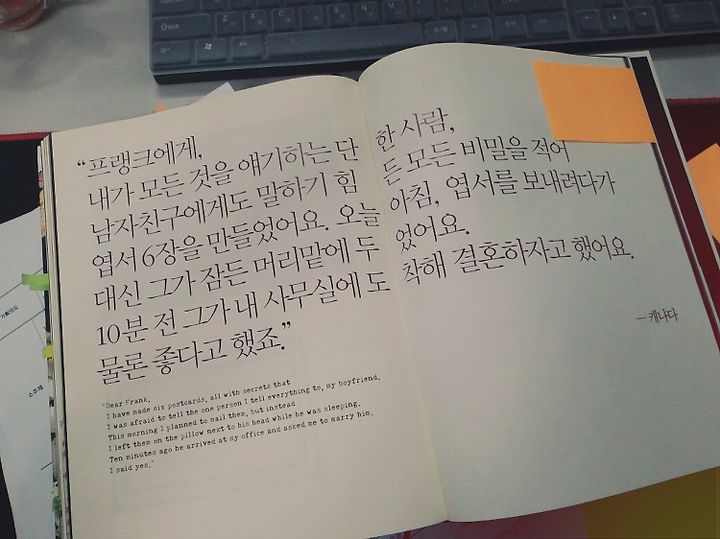 “프랭크에게,
내가 모든 것을 얘기하는 단 한 사람,
남자친구에게도 말하기 힘든 모든 비밀을 적어
엽서 6장을 만들었어요. 오늘 아침, 엽서를 보내려다가
대신 그가 잠든 머리맡에 두었어요.
10분 전 그가 내 사무실에 도착해 결혼하자고 했어요.
물론 좋다고 했죠.”
— 캐나다
"Dear Frank,
I have made six postcards, all with secrets that
I was afraid to tell the one person I tell everything to, my boyfriend.
This morning I planned to mail them, but instead
I left them on the pillow next to his head while he was sleeping.
Ten minutes ago he arrived at my office and asked me to marry him.
I said yes."